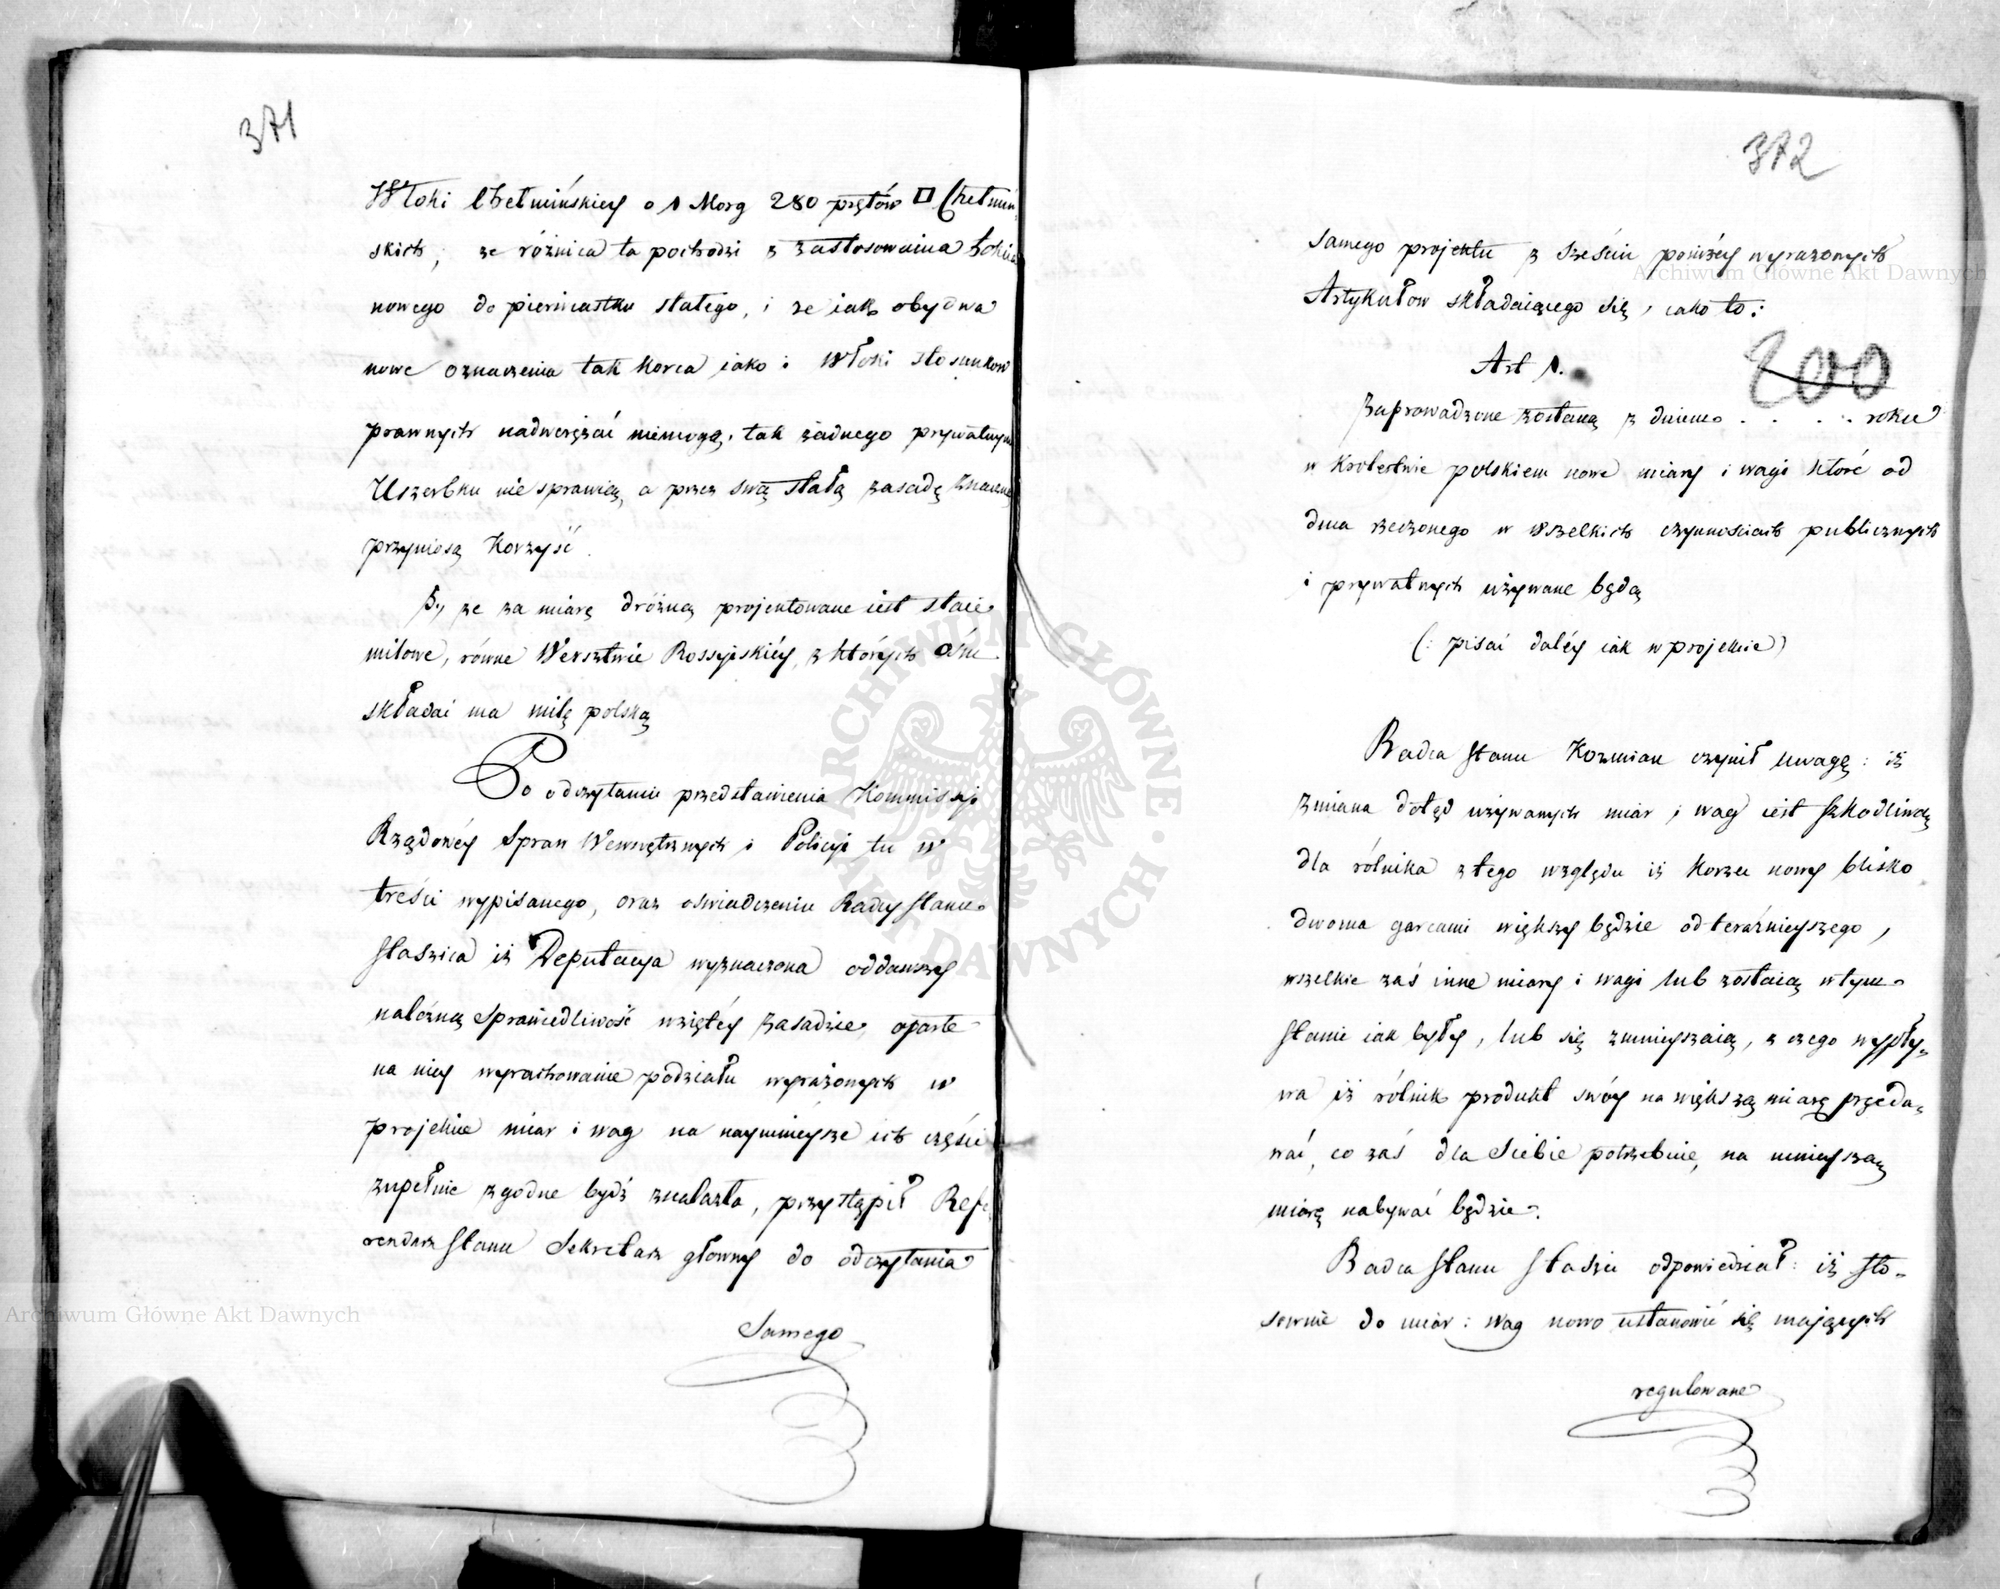 371
Włoki Chełmińskiey o 1 Morg 280 prętów □ Chełmiń-
skich, że różnica ta pochodzi z zastosowania
nowego do pierwiastku stałego, i że iak obydwa
nowe oznaczenia tak Korca iako i Włoki stosunków
prawnych nadwerężać niemogą, tak żadnego prywatnym
Uszerbku nie sprawią, a przez swą stałą zasadę znaczną
przyniosą Korzyść.
5., że za miarę dróżną projektowane iest staie
milowe, równe Werstwie Rossyiskiéy, z których ośm
składać ma milę polską
Po odczytaniu przedstawienia Kommissyi
Rządowéy Spraw Wewnętrznych i Policyi tu w
treści wypisanego, oraz oświadczeniu Radcy Stanu
Staszica iż Deputacya wyznaczona oddawszy
należną Sprawiedliwość wziętéy zasadzie, oparte
na niéy wyrachowanie podziału wyrażonych w
projekcie miar i wag na naymnieysze ich części
zupełnie zgodne bydź znalazła, przystąpił Refe-
rendarz Stanu Sekretarz główny do odczytania
Samego
372
samego projektu z sześciu poniżéy wyrażonych
Artykułow składaiącego się, iako to:
Art 1.
200
Zaprowadzone zostaną z dniem . . . . . roku
w Krolestwie polskiem nowe miary i wagi które od
dnia rzeczonego w wszelkich czynnościach publicznych
i prywatnych używane będą
(: pisać daléy iak w projekcie)
Radca Stanu Kozmian czynił uwagę: iż
zmiana dotąd używanych miar i wag iest szkodliwą
dla rólnika z tego względu iż Korzec nowy blisko
dwoma garcami większy będzie od teraźnieyszego,
wszelkie zaś inne miary i wagi lub zostaią w tym
stanie iak były, lub się zmnieyszaią, z czego wypły-
wa iż rólnik produkt swóy na większą miarę przeda-
wać, co zaś dla siebie potrzebnie, na mnieyszą
miarę nabywać będzie.
Radca Stanu Staszic odpowiedział: iż sto-
sownie do miar i wag nowo ustanowić się maiących
regulowane
Archiwum Główne Akt Dawnych
Archiwum Główne Akt Dawnych
ARCHIWUM GŁÓWNE AKT DAWNYCH